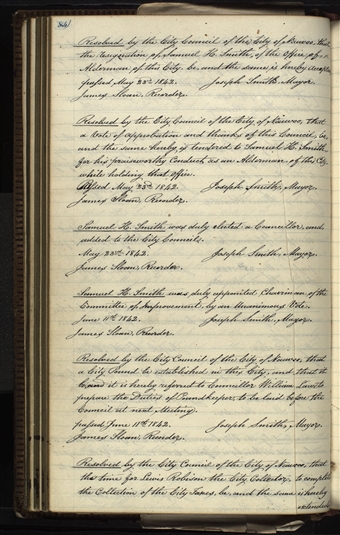 84
Resolved by the City Council of the City of Nauvoo, that
the resignation of Samuel H. Smith, of the Office of
Alderman, of this City, be, and the same is hereby accepted
passed May 23rd 1842. Joseph Smith, Mayor.
James Sloan, Recorder.
Resolved by the City Council of the City of Nauvoo, that
a Vote of approbation and thanks of this Council, be,
and the same hereby is tendered to Samuel H. Smith,
for his praiseworthy Conduct, as an Alderman, of this City,
while holding that Office.
Passed May 23rd 1842. Joseph Smith, Mayor.
James Sloan, Recorder.
Samuel H. Smith was duly elected a Councillor, and
added to the City Council.
May 23rd 1842. Joseph Smith, Mayor.
James Sloan, Recorder.
Samuel H. Smith was duly appointed Chairman, of the
Committee of Improvement, by an Unanimous Vote.
June 11th 1842. Joseph Smith, Mayor.
James Sloan, Recorder.
Resolved by the City Council of the City of Nauvoo, that
a City Pound be established in this City, and that
it is hereby referred to Councillor William Law to
prepare the Duties of Pound keeper, to be laid before the
Council at next Meeting.
passed June 11th 1842. Joseph Smith, Mayor.
James Sloan, Recorder.
Resolved by the City Council of the City of Nauvoo, that
the time for Lewis Robison the City Collector, to complete
the Collection of the City Taxes, be, and the same is hereby
extended